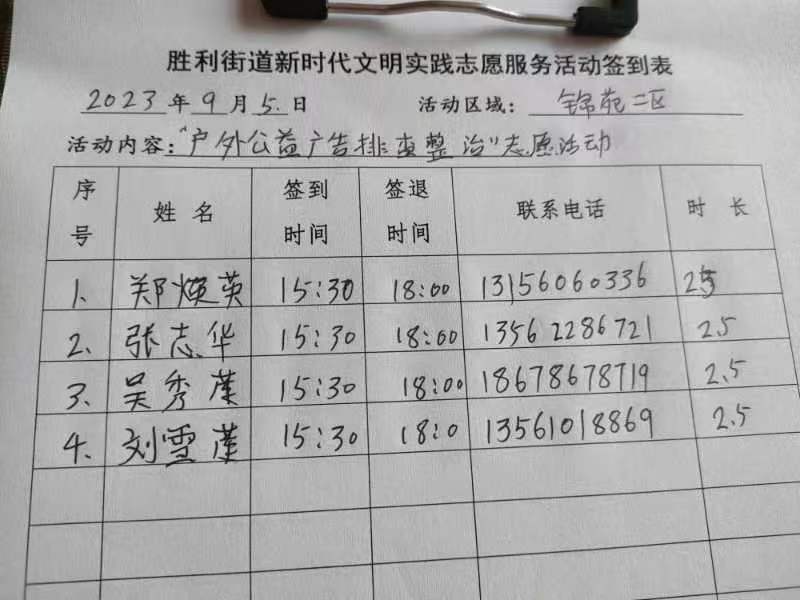 胜利街道新时代文明实践志愿服务活动签到表
2023年9月5.日 活动区域：锦苑二区
活动内容："户外公益广告排查整治"志愿活动
序号 姓名 签到时间 签退时间 联系电话 时长
1、 郑焕英 15:30 18:00 13156060336 2.5
2、 张志华 15:30 18:00 13562286721 2.5
3、 吴秀莲 15:30 18:00 18678678719 2.5
4、 刘雪莲 15:30 18:0 13561018869 2.5